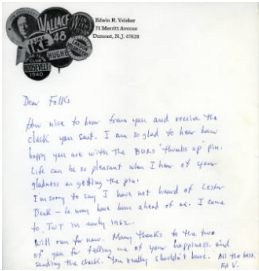 WALLACE
'48
HUGHES
ROOSEVELT
1940
Edwin R. Veisher
71 Merritt Avenue
Dumont, N.J. 07628
Dear Folks
How nice to hear from you and receive the
check you sent. I am so glad to hear how
happy you are with the "thumbs up" pin.
Life can be so pleasant when I hear of your
gladness on getting the pin.
I'm sorry to say I have not heard of Lester
- he may have been ahead of me. I came
to, in early 1942.
Will close for now. Many thanks to the two
of you for telling me of your happiness, and
sending the check. You really shouldn't have. All the best.
Ed V.